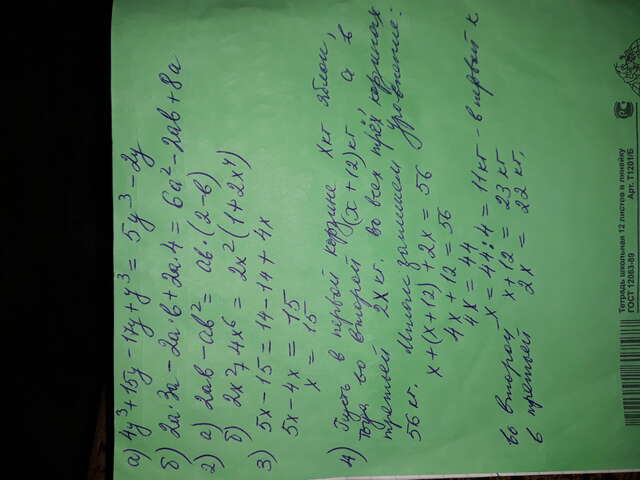 а) 4y³+15y-17y+y³= 5y³-2y
б) 2a·3a-2a·b+2a·4=6a²-2ab+8a
2) а) 2ab-ab²= ab·(2-b)
б) 2x²+4x⁶ = 2x²(1+2x⁴)
3) 5x-15=14-14+4x
5x-4x = 15
x = 15
4) Пусть в первой корзине Xкг яблок,
тогда во второй (x+12)кг, а в
третьей 2Xкг. Во всех трёх корзинах
56кг. Итого запишем уравнение:
x+(x+12)+2x=56
4x+12=56
4x=44
x=44:4=11кг - в первой к
во второй x+12=23кг
в третьей 2x = 22кг.
Тетрадь школьная 12 листов в линейку
ГОСТ 12063-89 Арт. Т1201/Б